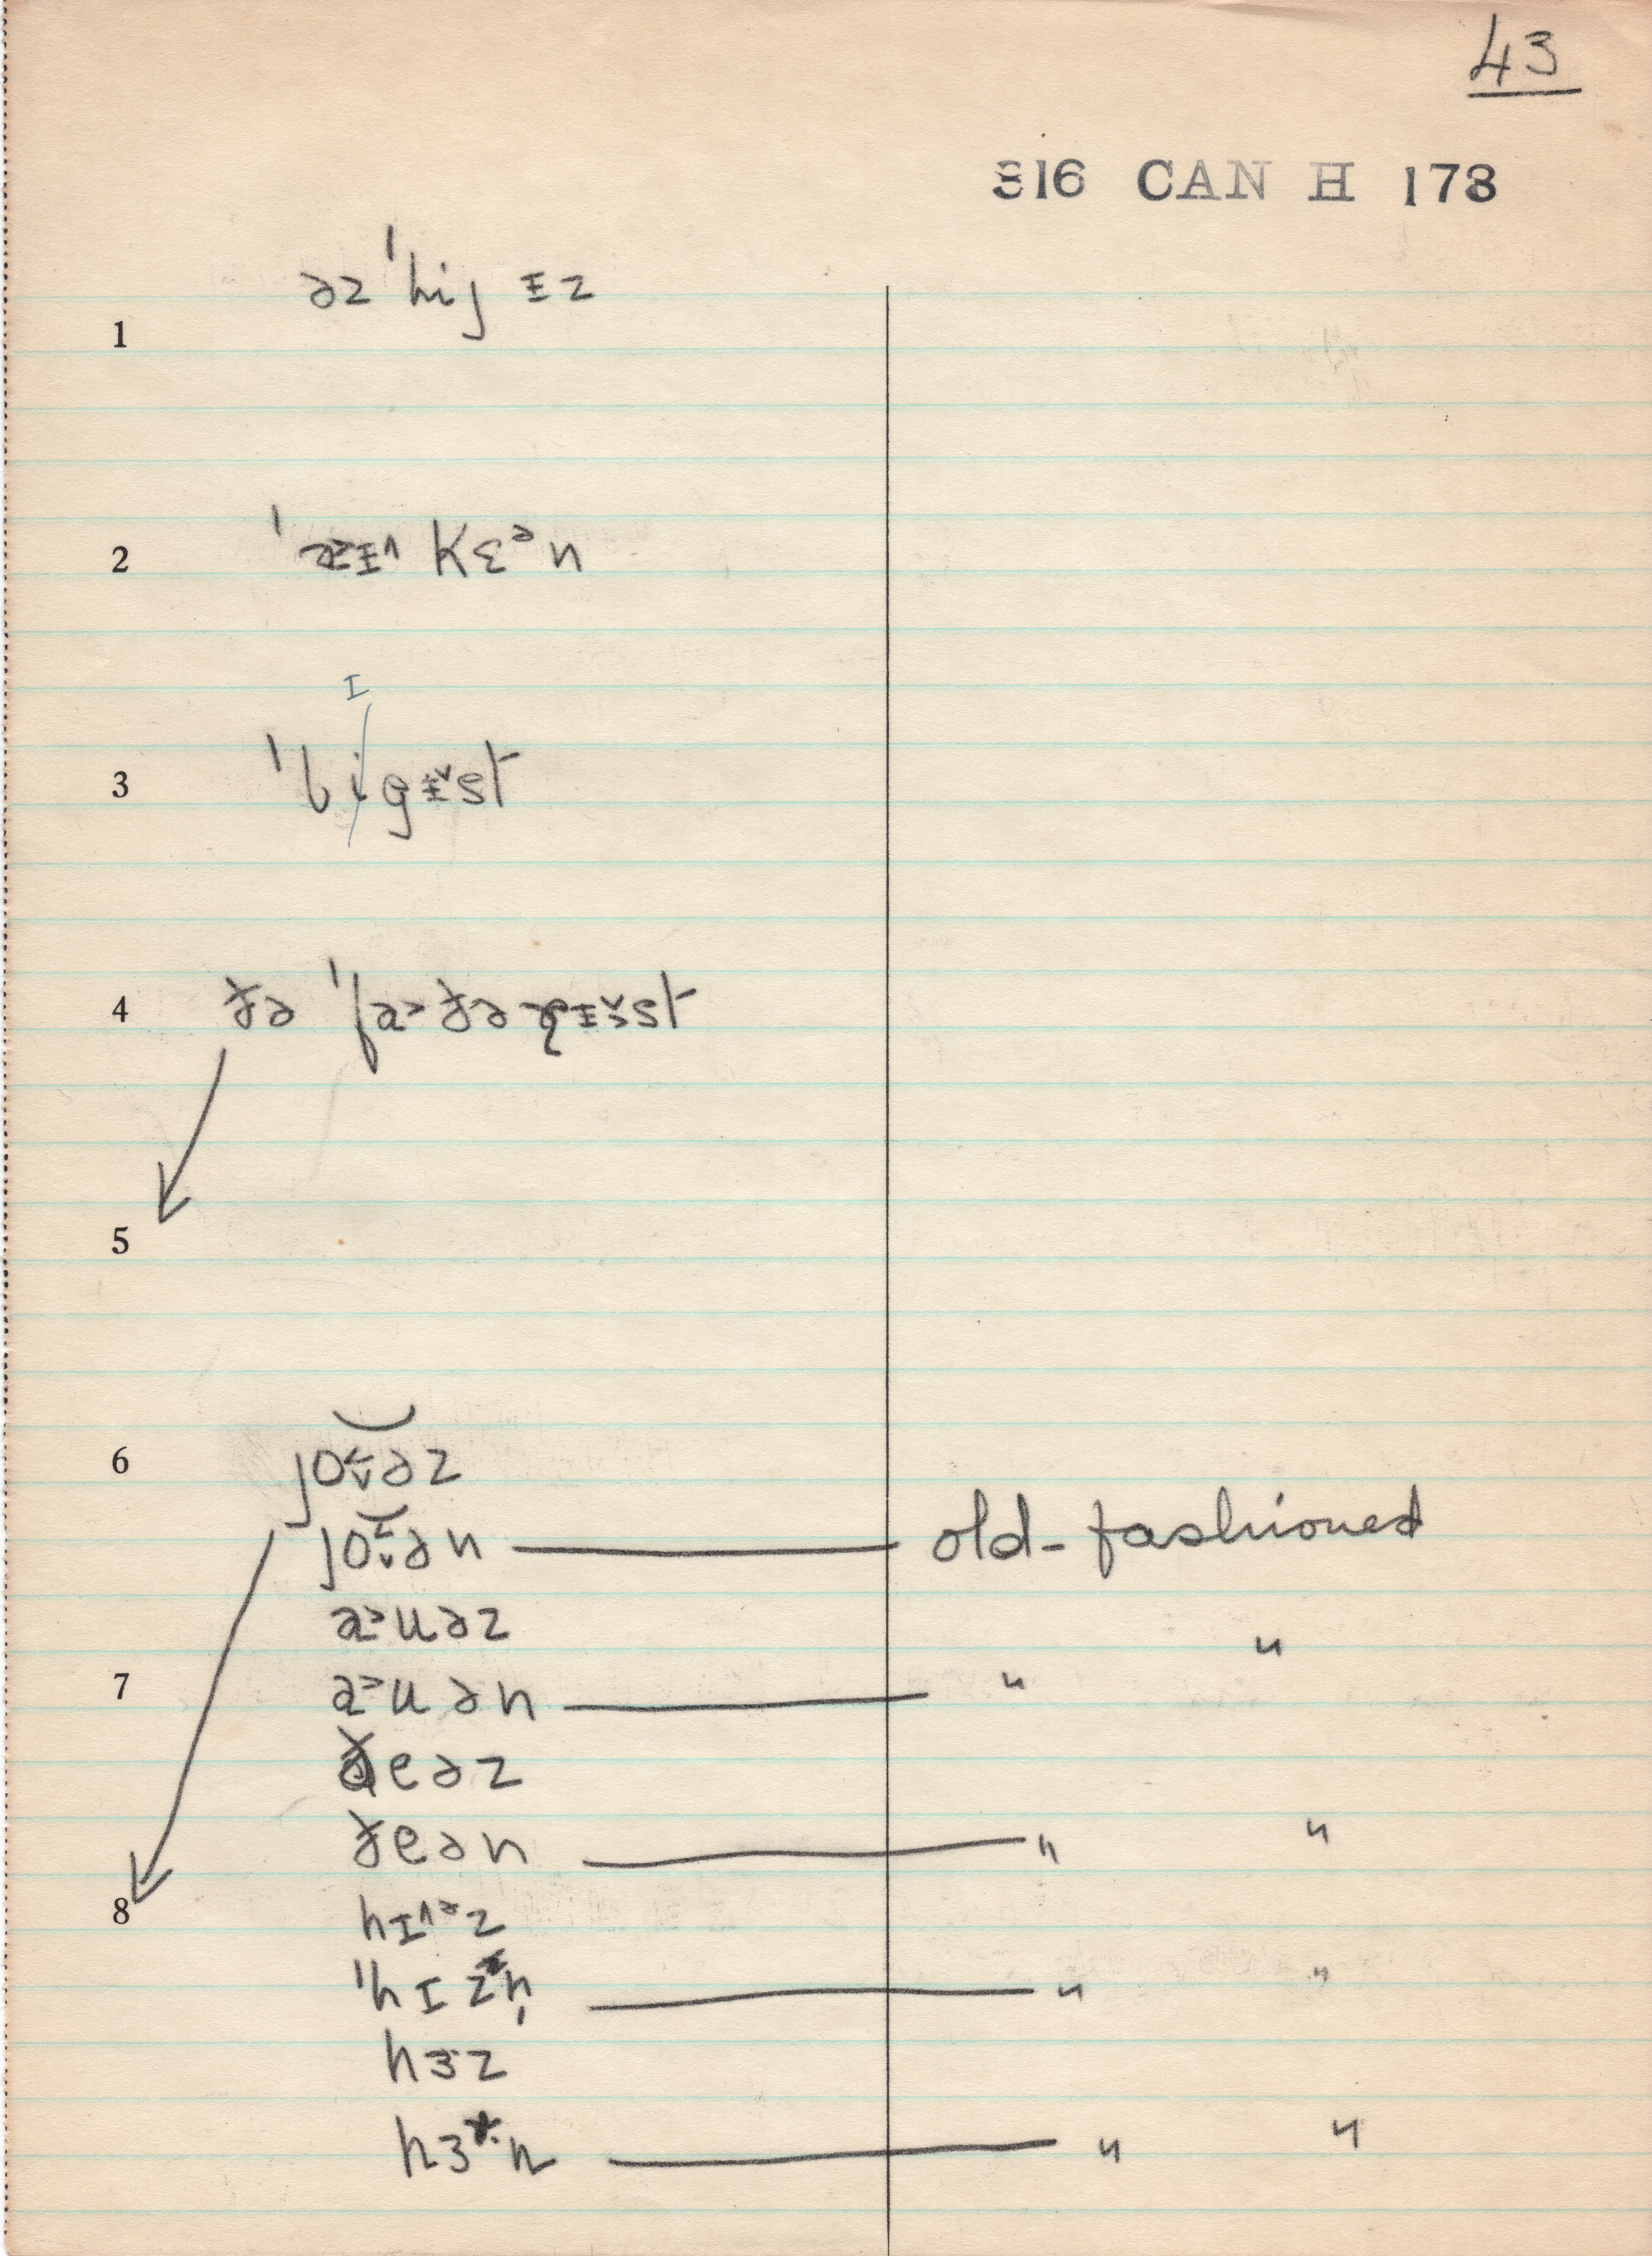 43
316 CAN H 173
1 əz ˈhij ɪz
2 ˈaɪ kɛᵊn
I
3 ˈbigɪ̵st
4 ðə ˈfaðəɹɪst
5
6 joəz
joən old-fashioned
auəz "
7 auən "
ðeəz
ðeən " "
8 hɪᵊz
ˈhɪzn̩ " "
hɜz
hɜn " "